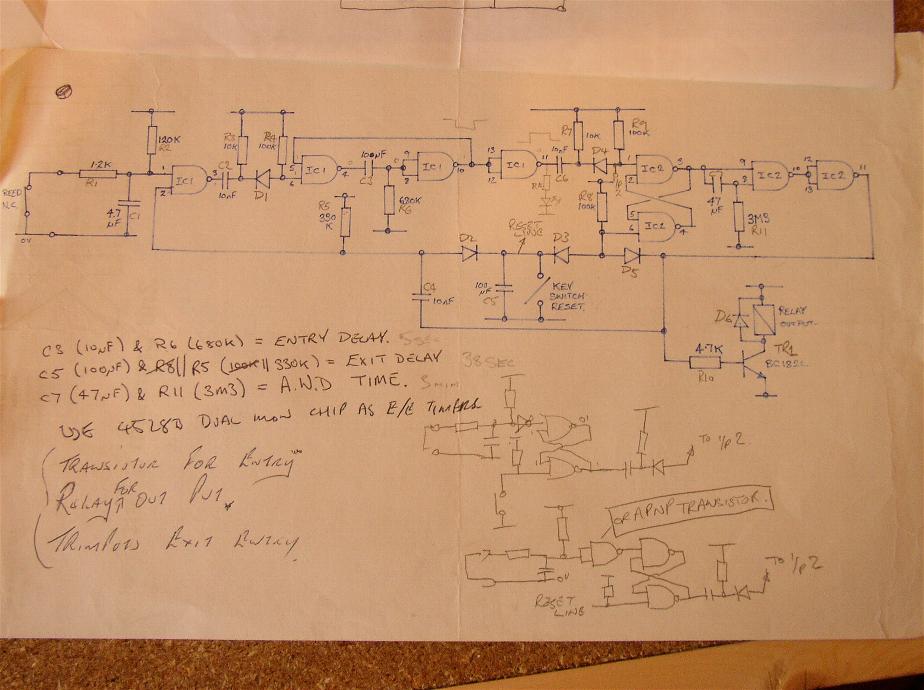 120K
R2
1·2K
R1
REED
N.C.
0V
4.7
µF
C1
1
2
IC1
3
C2
10nF
R3
10K
R4
100K
D1
5
6
IC1
4
100µF
C3
R5
330
K
9
8
IC1
10
680K
R6
13
12
IC1
11
10nF
C6
R7
10K
D4
R9
100K
R8
100K
1
2
IC2
3
5
6
IC2
4
C7
47
µF
3M3
R11
9
8
IC2
10
12
13
IC2
11
D2
RESET
LINE
D3
D5
C4
10nF
100
µF
C5
KEY
SWITCH
RESET.
D6
RELAY
OUTPUT.
TR1
BC182L
4·7K
R10
C3 (10µF) & R6 (680K) = ENTRY DELAY. 5 SEC
C5 (100µF) & R8|| R5 (100K || 330K) = EXIT DELAY 38 SEC
C7 (47µF) & R11 (3M3) = A.W.D TIME. 3 min
USE 4528B DUAL MON CHIP AS E/E TIMERS
TRANSISTOR FOR ENTRY
RELAY FOR OUT PUT
TRIMPOTS EXIT ENTRY
TO 1/P 2.
OR A PNP TRANSISTOR.
0V
RESET
LINE
TO 1/P 2